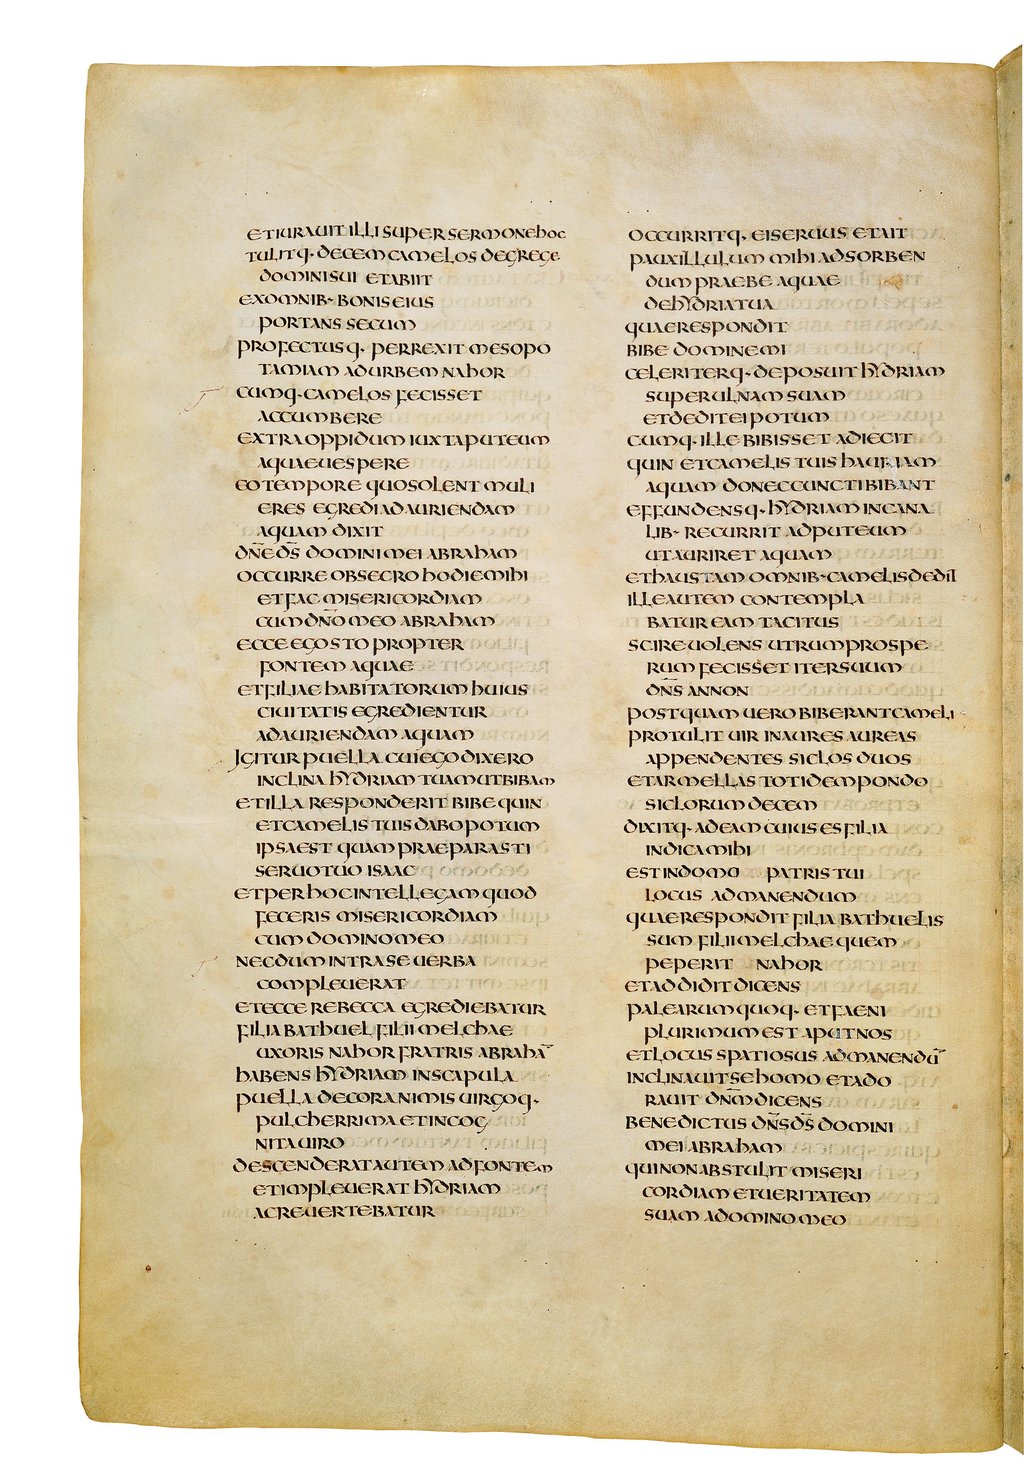 ETIURAUIT ILLI SUPER SERMONE hOC
TULITQ· DECEM CAMELOS DE GREGE
DOMINI SUI ET ABIIT
EX OMNIB· BONIS EIUS
PORTANS SECUM
PROFECTUSQ· PERREXIT MESOPO
TAMIAM AD URBEM NAhOR
CUMQ· CAMELOS FECISSET
ACCUMBERE
EXTRA OPPIDUM IUXTA PUTEUM
AQUAE UESPERE
EO TEMPORE QUO SOLENT MULI
ERES EGREDI AD AURIENDAM
AQUAM DIXIT
DN̄E DS̄ DOMINI MEI ABRAhAM
OCCURRE OBSECRO hODIE MIhI
ET FAC MISERICORDIAM
CUM DN̄O MEO ABRAhAM
ECCE EGO STO PROPTER
FONTEM AQUAE
ET FILIAE hABITATORUM hUIUS
CIUITATIS EGREDIENTUR
AD AURIENDAM AQUAM
IGITUR PUELLA CUI EGO DIXERO
INCLINA hYDRIAM TUAM UT BIBAM
ET ILLA RESPONDERIT BIBE QUIN
ET CAMELIS TUIS DABO POTUM
IPSA EST QUAM PRAEPARASTI
SERUO TUO ISAAC
ET PER hOC INTELLEGAM QUOD
FECERIS MISERICORDIAM
CUM DOMINO MEO
NECDUM INTRA SE UERBA
COMPLEUERAT
ET ECCE REBECCA EGREDIEBATUR
FILIA BAThUEL FILII MELChAE
UXORIS NAhOR FRATRIS ABRAhĀ
hABENS hYDRIAM IN SCAPULA
PUELLA DECORA NIMIS UIRGOQ·
PULChERRIMA ET INCOG
NITA UIRO
DESCENDERAT AUTEM AD FONTEM
ET IMPLEUERAT hYDRIAM
AC REUERTEBATUR
OCCURRITQ· EI SERUUS ET AIT
PAUXILLULUM MIhI AD SORBEN
DUM PRAEBE AQUAE
DE hYDRIA TUA
QUAE RESPONDIT
BIBE DOMINE MI
CELERITERQ· DEPOSUIT hYDRIAM
SUPER ULNAM SUAM
ET DEDIT EI POTUM
CUMQ· ILLE BIBISSET ADIECIT
QUIN ET CAMELIS TUIS hAURIAM
AQUAM DONEC CUNCTI BIBANT
EFFUNDENSQ· hYDRIAM IN CANA
LIB· RECURRIT AD PUTEUM
UT AURIRET AQUAM
ET hAUSTAM OMNIB· CAMELIS DEDIT
ILLE AUTEM CONTEMPLA
BATUR EAM TACITUS
SCIRE UOLENS UTRUM PROSPE
RUM FECISSET ITER SUUM
DN̄S AN NON
POSTQUAM UERO BIBERANT CAMELI
PROTULIT UIR INAURES AUREAS
APPENDENTES SICLOS DUOS
ET ARMELLAS TOTIDEM PONDO
SICLORUM DECEM
DIXITQ· AD EAM CUIUS ES FILIA
INDICA MIhI
EST IN DOMO PATRIS TUI
LOCUS AD MANENDUM
QUAE RESPONDIT FILIA BAThUELIS
SUM FILII MELChAE QUEM
PEPERIT NAhOR
ET ADDIDIT DICENS
PALEARUM QUOQ· ET FAENI
PLURIMUM EST APUT NOS
ET LOCUS SPATIOSUS AD MANENDŪ
INCLINAUIT SE hOMO ET ADO
RAUIT DN̄M DICENS
BENEDICTUS DN̄S DS̄ DOMINI
MEI ABRAhAM
QUI NON ABSTULIT MISERI
CORDIAM ET UERITATEM
SUAM A DOMINO MEO